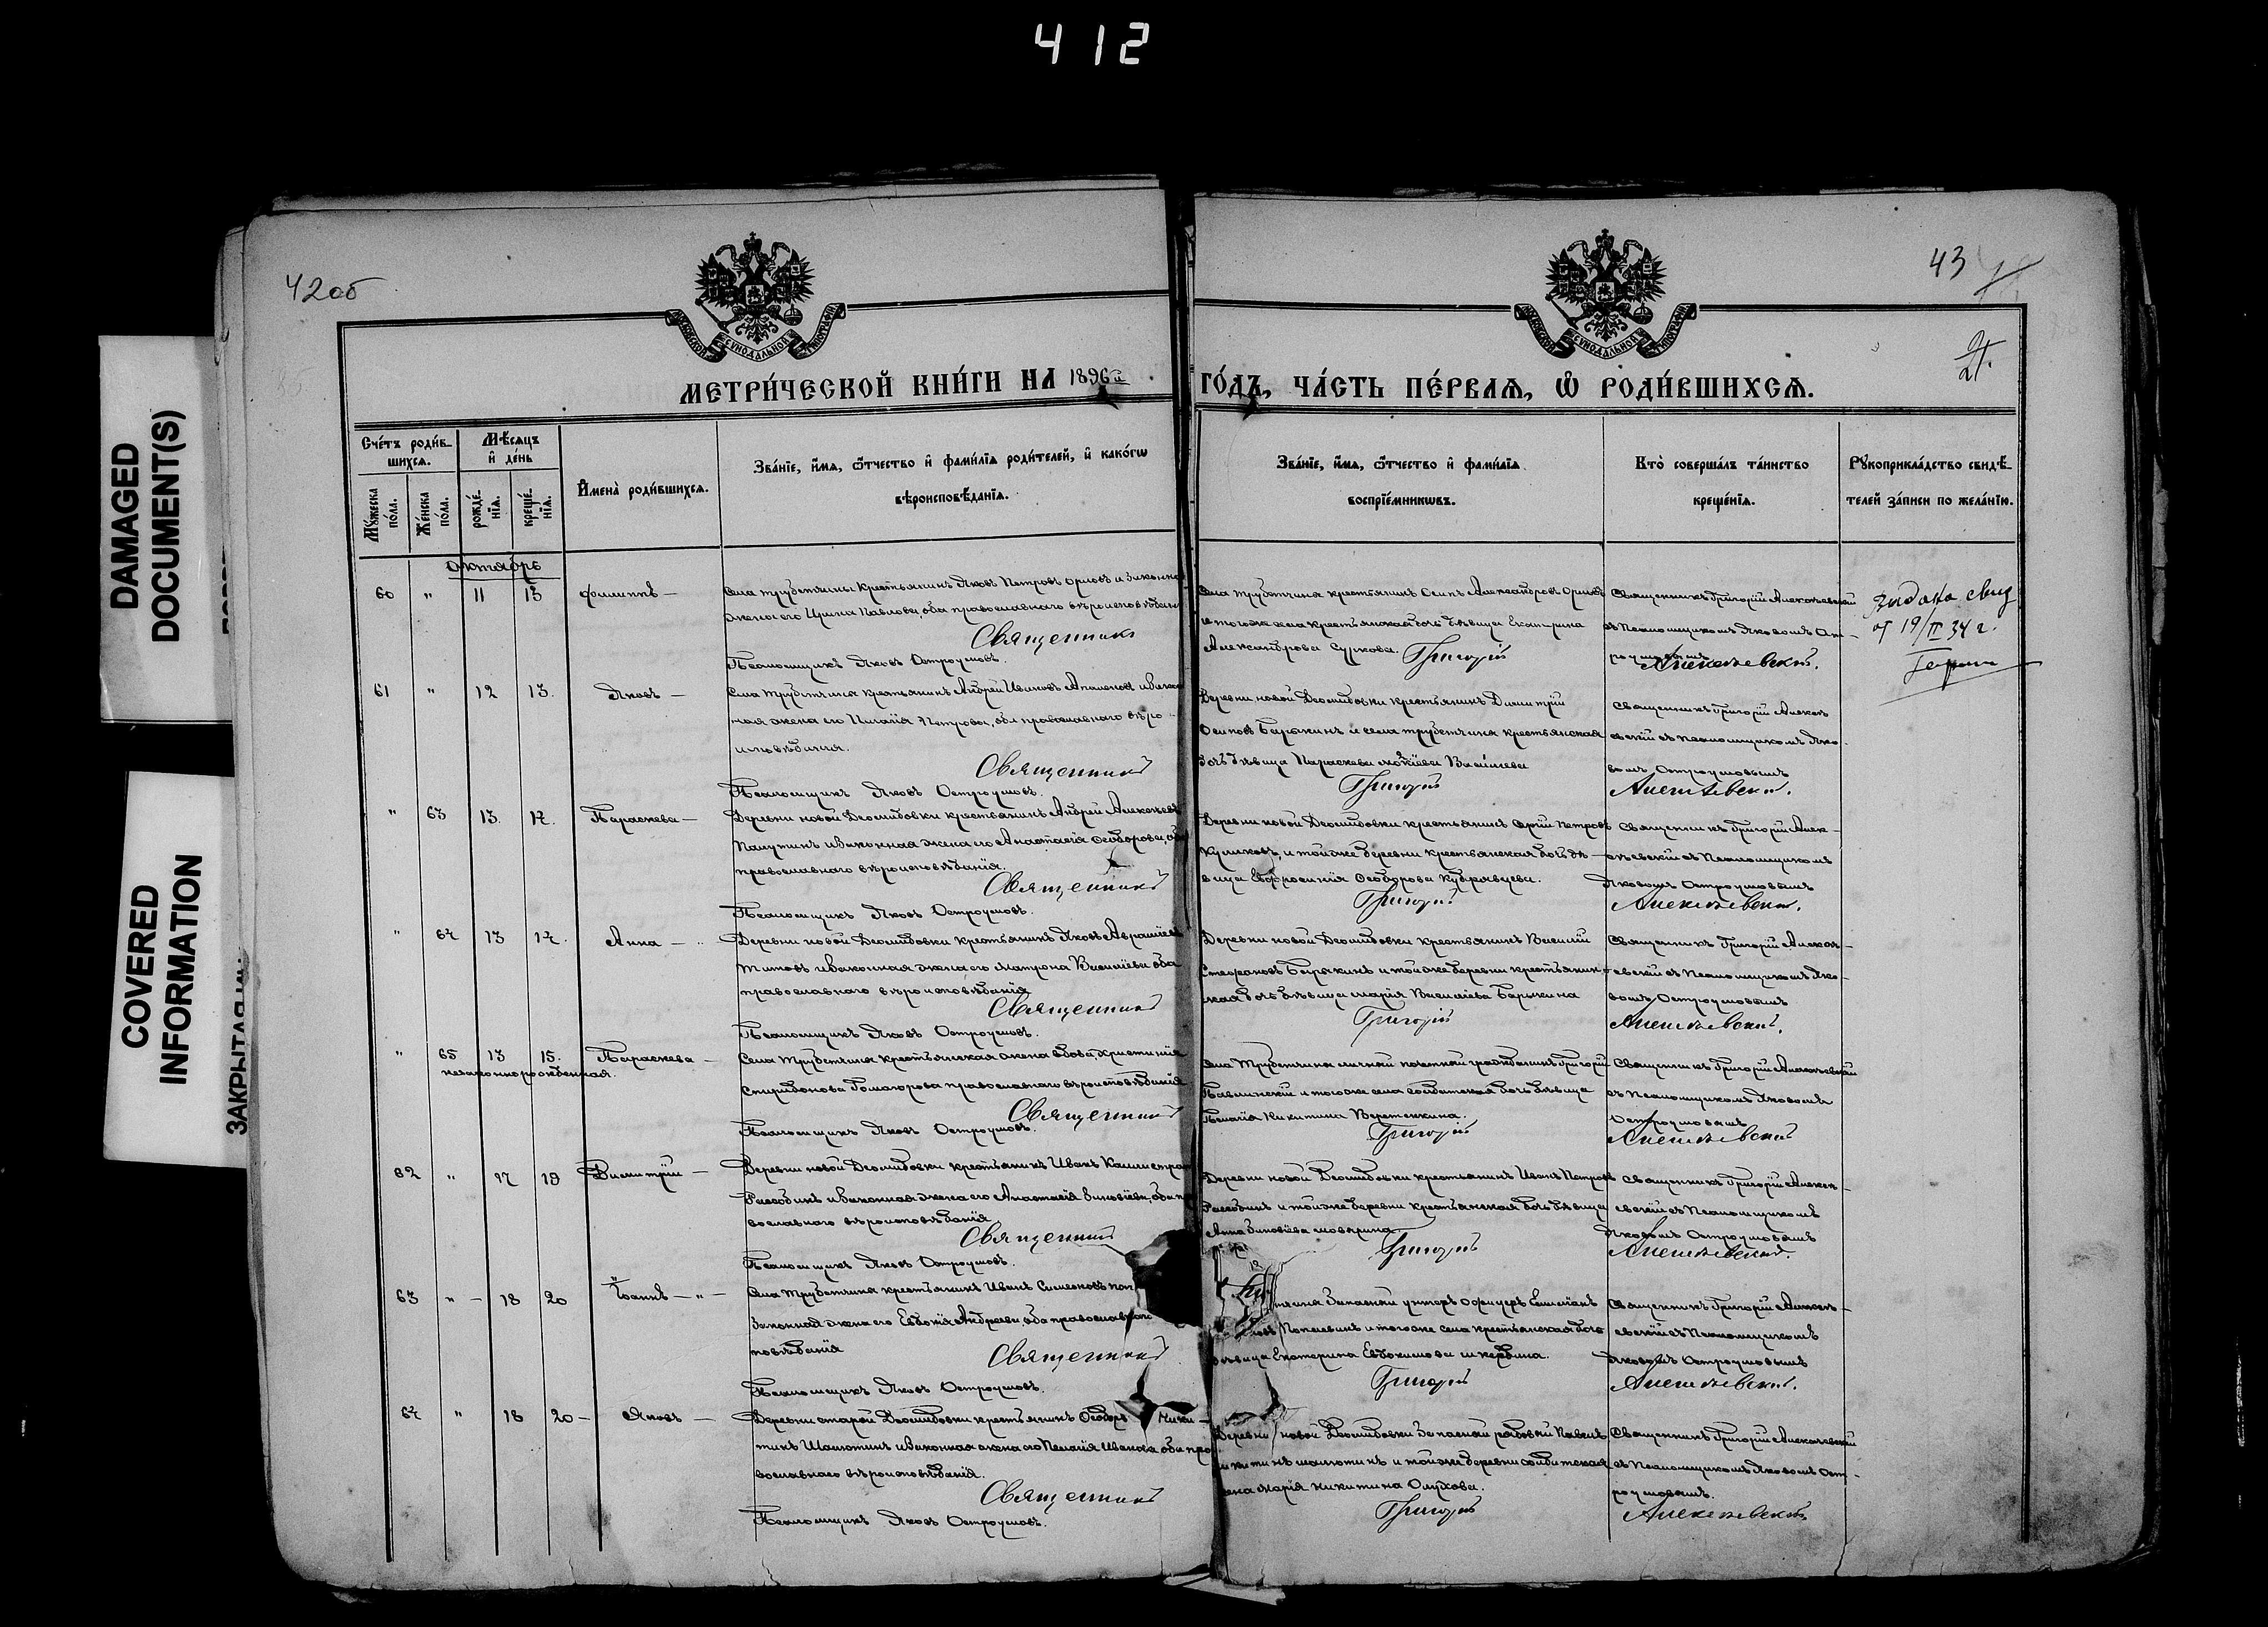 412
42 об
43
21.
DAMAGED
DOCUMENT(S)
COVERED
INFORMATION
ЗАКРЫТАЯ
МОСКОВСКОЙ СУНОДАЛЬНОЙ ТИПОГРАФІИ
МОСКОВСКОЙ СУНОДАЛЬНОЙ ТИПОГРАФІИ
МЕТРИ́ЧЕСКОЙ КНИ́ГИ НА 1896й ГО́ДЪ, ЧА́СТЬ ПЕ́РВАѦ, Ѡ҆ РОДИ́ВШИХСѦ.
Сче́тъ роди́в-
шихсѧ.
Мѣ́сѧцъ
и҆ де́нь
Мꙋ́жеска
по́ла.
Же́нска
по́ла.
рожде́-
нїѧ.
креще́-
нїѧ.
И҆мена̀ роди́вшихсѧ.
Зва́нїе, и҆́мѧ, ѻ҆́тчество и҆ фами́лїѧ роди́телей, и҆ како́гѡ
вѣроисповѣ́данїѧ.
Зва́нїе, и҆́мѧ, ѻ҆́тчество и҆ фами́лїѧ
воспрїе́мникѡвъ.
Кто̀ соверша́лъ та́инство
креще́нїѧ.
Рꙋкоприкла́дство свидѣ́-
телей за́писи по жела́нїю.
Октябрь
60 " 11 13 Филиппъ —
Села Трубетчины крестьянинъ Яковъ Петровъ Орловъ и законная
жена его Ирина Павлова, оба православнаго вѣроисповѣдан
Священникъ
Псаломщикъ Яковъ Остроумовъ.
Села Трубетчина крестьянинъ Осипъ Александровъ Орловъ
и того же села крестьянская дочь дѣвица Екатерина
Александрова Суркова. Григорій
Священникъ Григорій Алексѣевскій
съ Псаломщикомъ Яковомъ Ост-
роумовымъ
Алексѣевскій.
Выдано свид
от 19/II 34 г.
61 " 12 13. Яковъ —
Села Трубетчина крестьянинъ Андрей Ивановъ и закон
ная жена его Пелагія Петрова, оба православнаго вѣро-
исповѣданія.
Священникъ
Псаломщикъ Яковъ Остроумовъ.
Деревни новой Деомидовки крестьянинъ Димитрій
Осиповъ Барыкинъ и села Трубетчина крестьянская
дочь дѣвица Параскева Мокіева Васильева
Григорій
Священникъ Григорій Алексѣ
евскій съ Псаломщикомъ Яко-
вомъ Остроумовымъ
Алексѣевскій.
" 63 13. 14. Параскева —
Деревни новой Деомидовки крестьянинъ Андрей Алексѣевъ
Папутинъ и законная жена его Анастасія Ѳеодорова, оба
православнаго вѣроисповѣданія.
Священникъ
Псаломщикъ Яковъ Остроумовъ.
Деревни новой Деомидовки крестьянинъ Сергій Петровъ
Куликовъ, и той же деревни крестьянская дочь дѣ-
вица Евфросинія Ѳеодорова Кудрявцева.
Григорій
Священникъ Григорій Алек-
сѣевскій съ Псаломщикомъ
Яковомъ Остроумовымъ
Алексѣевскій.
" 64 13 14. Анна — "
Деревни новой Деомидовки крестьянинъ Яковъ Авраміевъ
Титовъ и законная жена его Матрона Васильева оба
православнаго вѣроисповѣданія
Священникъ
Псаломщикъ Яковъ Остроумовъ.
Деревни новой Деомидовки крестьянинъ Василій
Стефановъ Барыкинъ и той же деревни крестьянс-
кая дочь дѣвица Марія Васильева Барыкина
Григорій
Священникъ Григорій Алексѣ-
евскій съ Псаломщикомъ Яко-
вомъ Остроумовымъ
Алексѣевскій.
" 65 13 15. Параскева —
незаконнорожденная.
Села Трубетчина крестьянская жена вдова Христинія
Спиридонова православнаго вѣроисповѣданія
Священникъ
Псаломщикъ Яковъ Остроумовъ.
Села Трубетчина личный почетный гражданинъ Григорій
Павлинскій и того же села солдатская дочь дѣвица
Пелагія Никитина Веретенкина.
Григорій
Священникъ Григорій Алексѣевскій
съ Псаломщикомъ Яковомъ
Остроумовымъ
Алексѣевскій
62 " 17 19 Димитрій —
Деревни новой Деомидовки крестьянинъ Иванъ Каллистрат
и законная жена его Анастасія Зиновіева, оба п
вославнаго вѣроисповѣданія
Священникъ
Псаломщикъ Яковъ Остроумовъ.
Деревни новой Деомидовки крестьянинъ Иванъ Петровъ
и той же деревни крестьянская дочь дѣвица
Анна Зиновіева
Григорій
Священникъ Григорій Алексѣ-
евскій съ Псаломщикомъ
Яковомъ Остроумовымъ
Алексѣевскій.
63 " — 18 20 Іоаннъ — " —
Села Трубетчина крестьянинъ Иванъ Симеоновъ Поп
законная жена его Евдокія Андреева, оба православнаго
повѣданія
Священникъ
Псаломщикъ Яковъ Остроумовъ.
Запасный унтеръ офицеръ Емеліанъ
и того же села крестьянская дочь
дѣвица Екатерина Евдокимова
Григорій
Священникъ Григорій Алексѣ-
евскій съ Псаломщикомъ
Яковомъ Остроумовымъ
Алексѣевскій.
64 " 18 20 — Яковъ —
Деревни старой Деомидовки крестьянинъ Ѳеодоръ Ники-
тинъ Шалютинъ и законная жена его Пелагія Иванова оба пра
вославнаго вѣроисповѣданія.
Священникъ
Псаломщикъ Яковъ Остроумовъ.
Деревни новой Деомидовки Запасный рядовой Павелъ
Никитинъ Шалютинъ и той же деревни солдатская
жена Марія Никитина
Григорій
Священникъ Григорій Алексѣевскій
съ Псаломщикомъ Яковомъ Ост-
роумовымъ.
Алексѣевскій